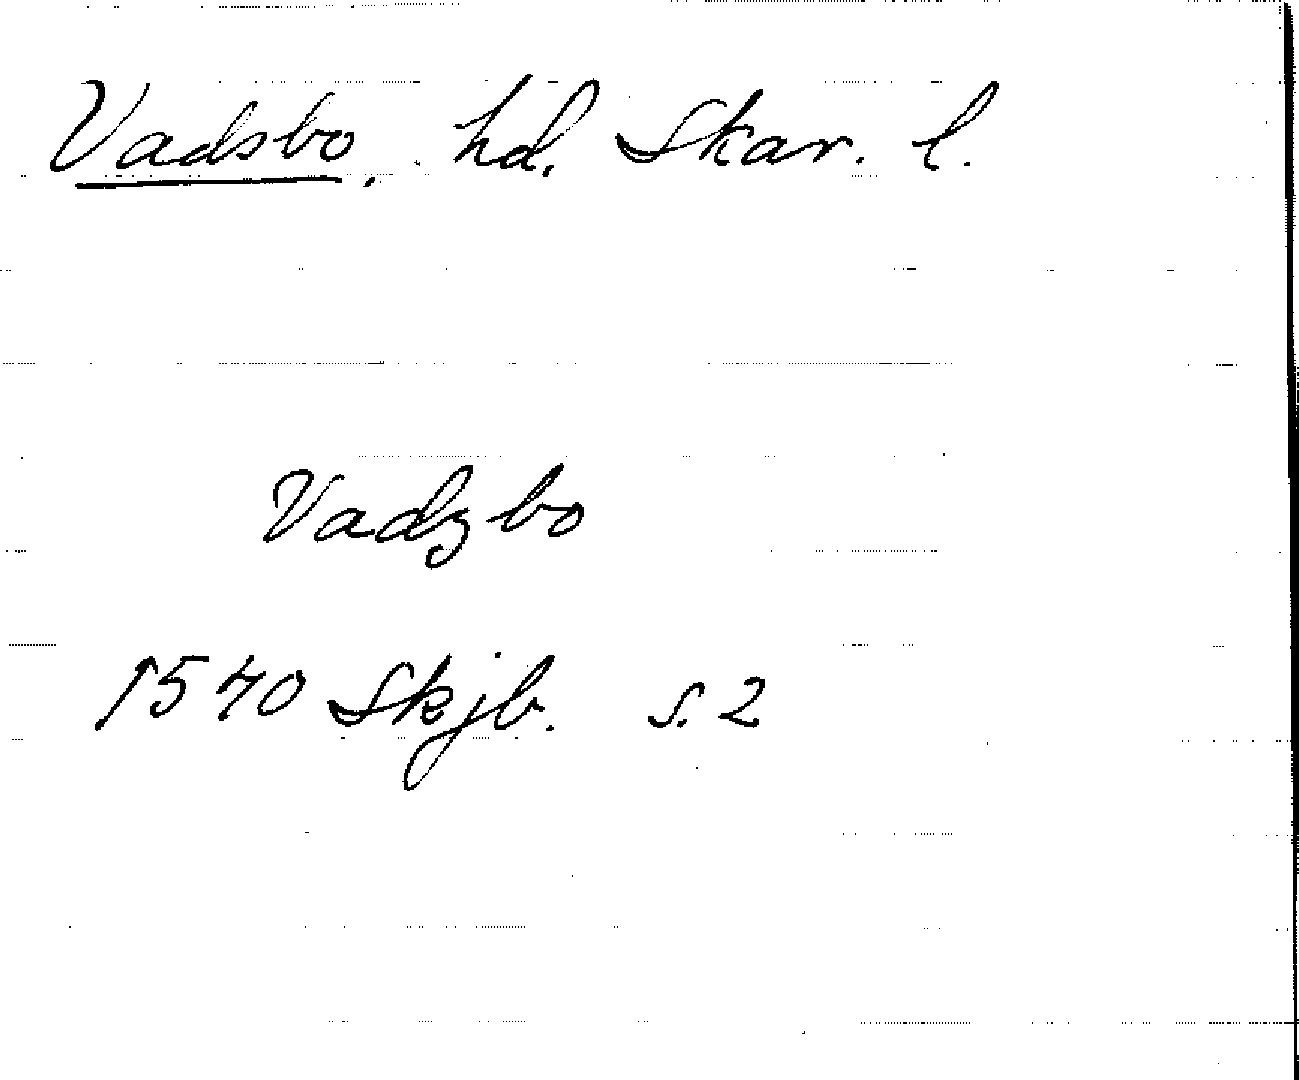 Vadsbo, hd. Skar. l.
Vadzbo
1540 Skjb. s. 2